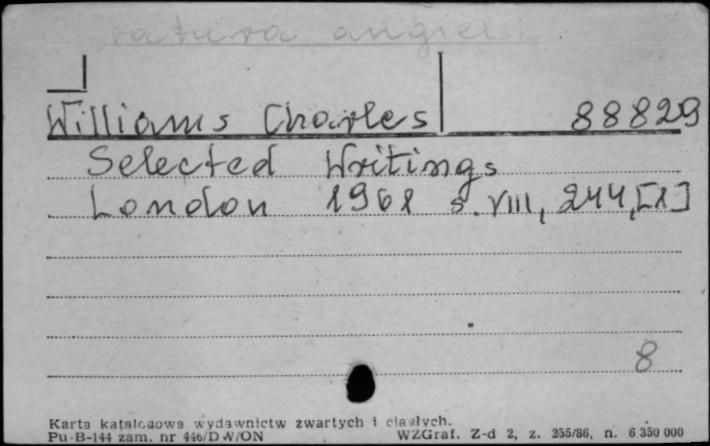 ratura angielsk
Williams Charles 88829
Selected Writings
London 1961 s. VIII, 244, [1]
8
Karta katalogowa wydawnictw zwartych i ciągłych.
Pu-B-144 zam. nr 446/DW/ON WZGraf. Z-d 2, z. 255/86, n. 6 350 000